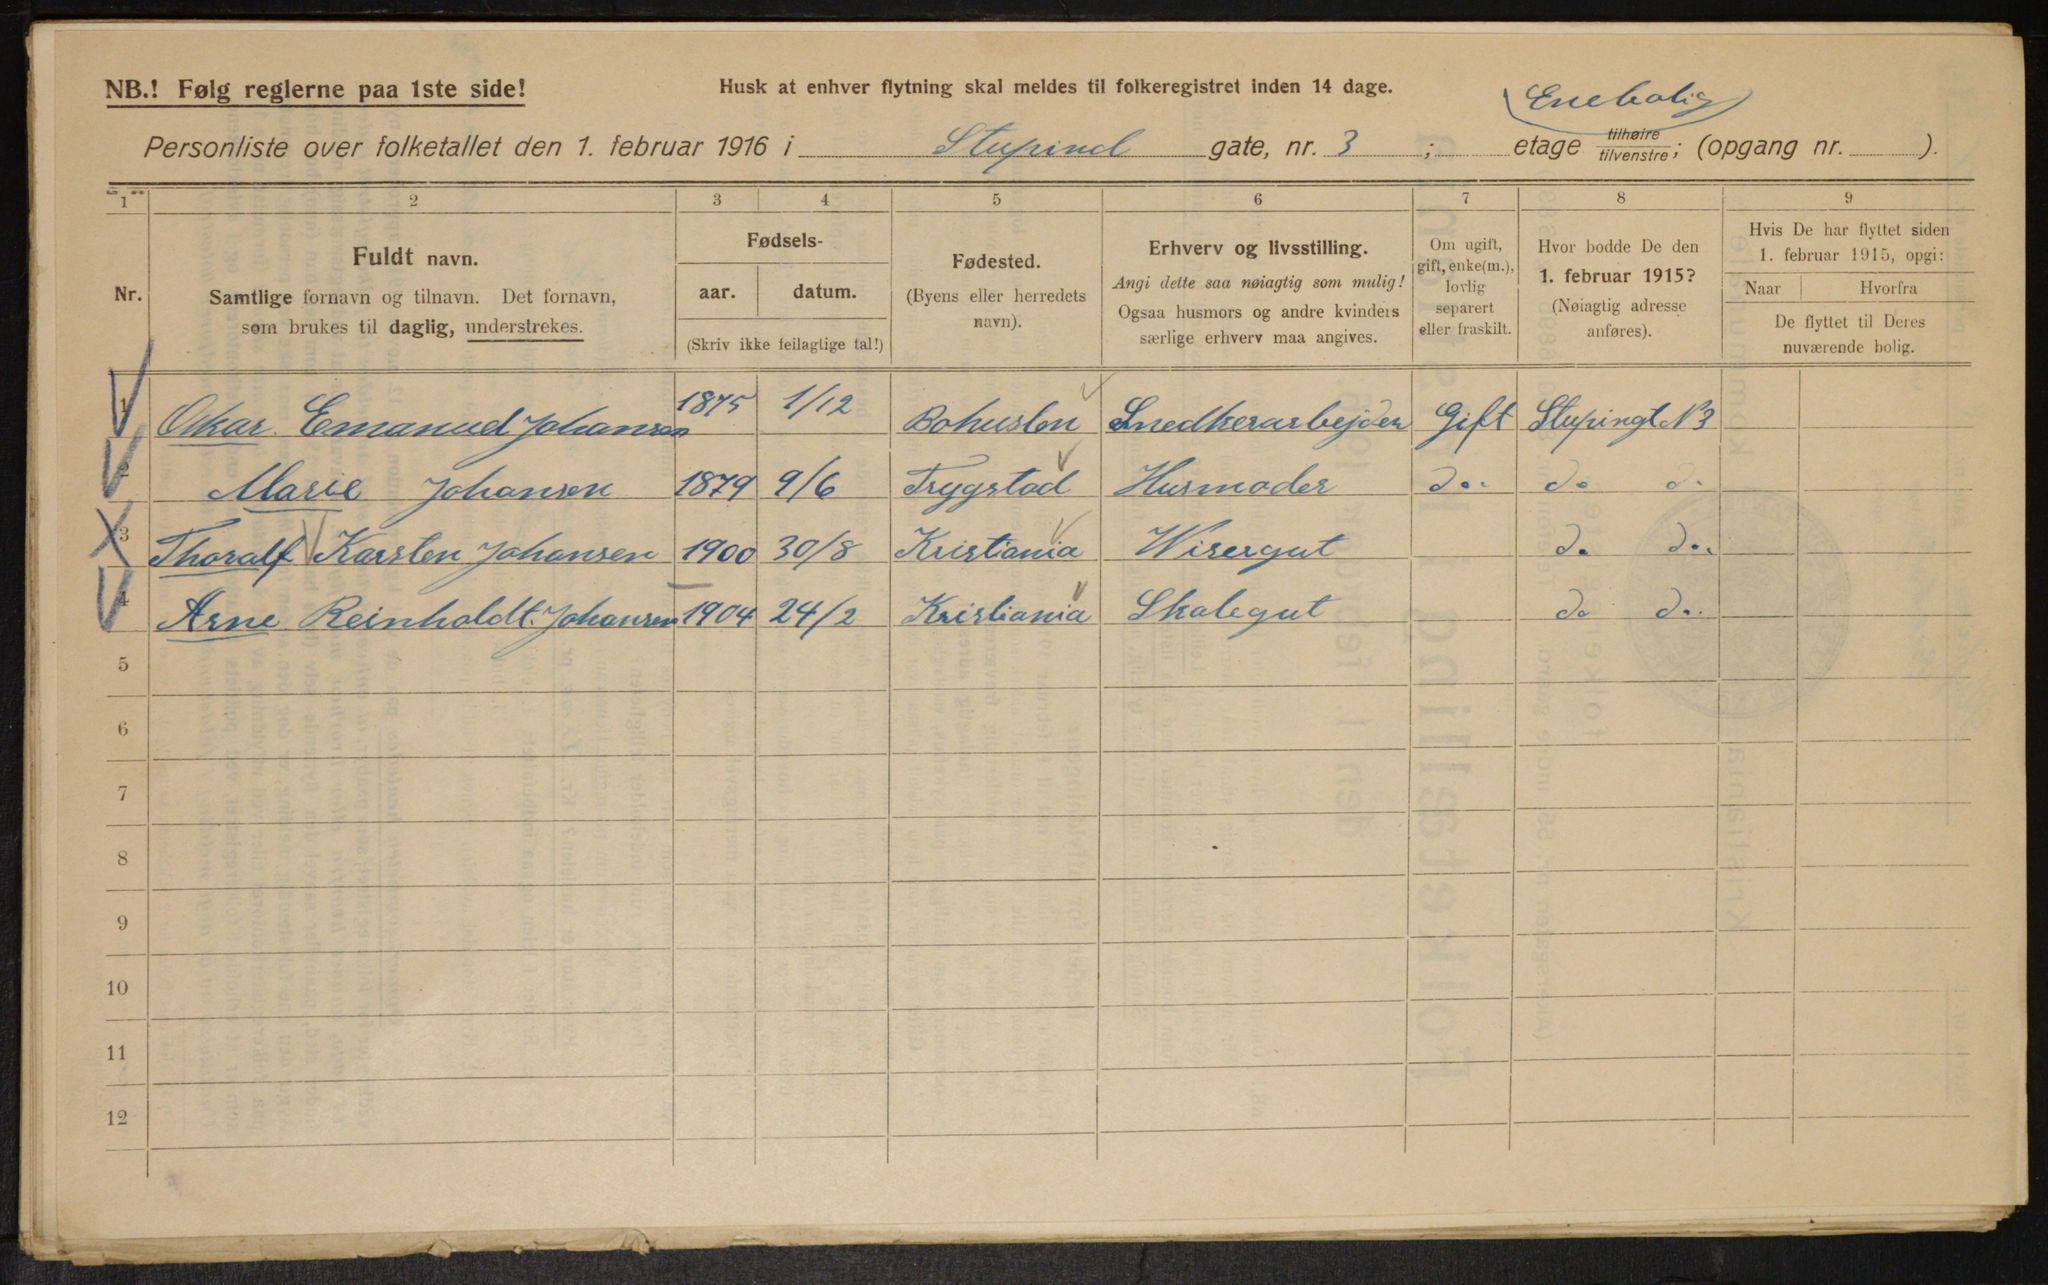 NB.! Følg reglerne paa 1ste side!
Husk at enhver flytning skal meldes til folkeregistret inden 14 dage.
Enebolig
Personliste over folketallet den 1. februar 1916 i Stupind gate, nr. 3 ; etage tilhøire/tilvenstre; (opgang nr. ).
1 2 3 4 5 6 7 8 9
Nr.
Fuldt navn.
Samtlige fornavn og tilnavn. Det fornavn,
som brukes til daglig, understrekes.
Fødsels-
aar. datum.
(Skriv ikke feilagtige tal!)
Fødested.
(Byens eller herredets
navn).
Erhverv og livsstilling.
Angi dette saa nøiagtig som mulig!
Ogsaa husmors og andre kvinders
særlige erhverv maa angives.
Om ugift,
gift, enke(m.),
lovlig
separert
eller fraskilt.
Hvor bodde De den
1. februar 1915?
(Nøiagtig adresse
anføres).
Hvis De har flyttet siden
1. februar 1915, opgi:
Naar Hvorfra
De flyttet til Deres
nuværende bolig.
1 Oskar Emanuel Johansen 1875 1/12 Bohuslen Snedkerarbejder Gift Stupingt N 3
2 Marie Johansen 1879 9/6 Trygstad Husmoder do. do do
3 Thoralf Karsten Johansen 1900 30/8 Kristiania Visergut do do.
4 Arne Reinholdt. Johansen 1904 24/2 Kristiania Skolegut do do.
5
6
7
8
9
10
11
12